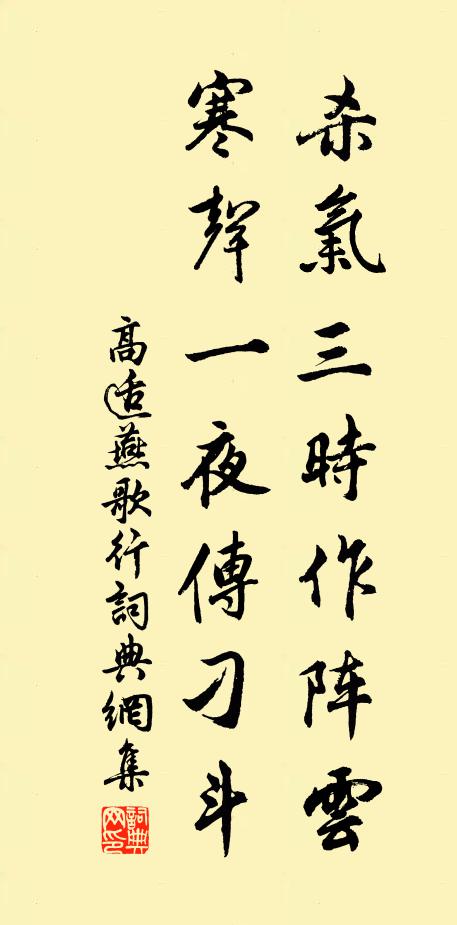 杀氣三時作阵雲
寒聲一夜傳刁斗
高适燕歌行詞典網集
詞典
网印